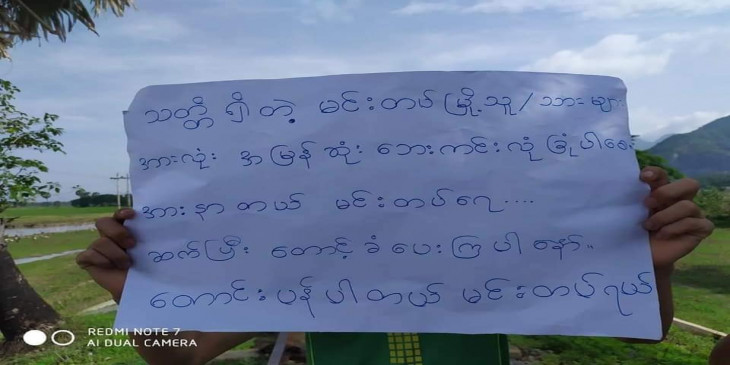 သတ္တိ ရှိတဲ့ မင်းတပ် မြို့သူ/သားများ
အားလုံး အမြန်ဆုံး ဘေးကင်းလုံခြုံပါစေ
အားနာတယ် မင်းတပ်ရေ....
ဆက်ပြီး တောင့်ခံပေးကြပါနော်။
တောင်းပန်ပါတယ် မင်းတပ်ရယ်
REDMI NOTE 7
AI DUAL CAMERA